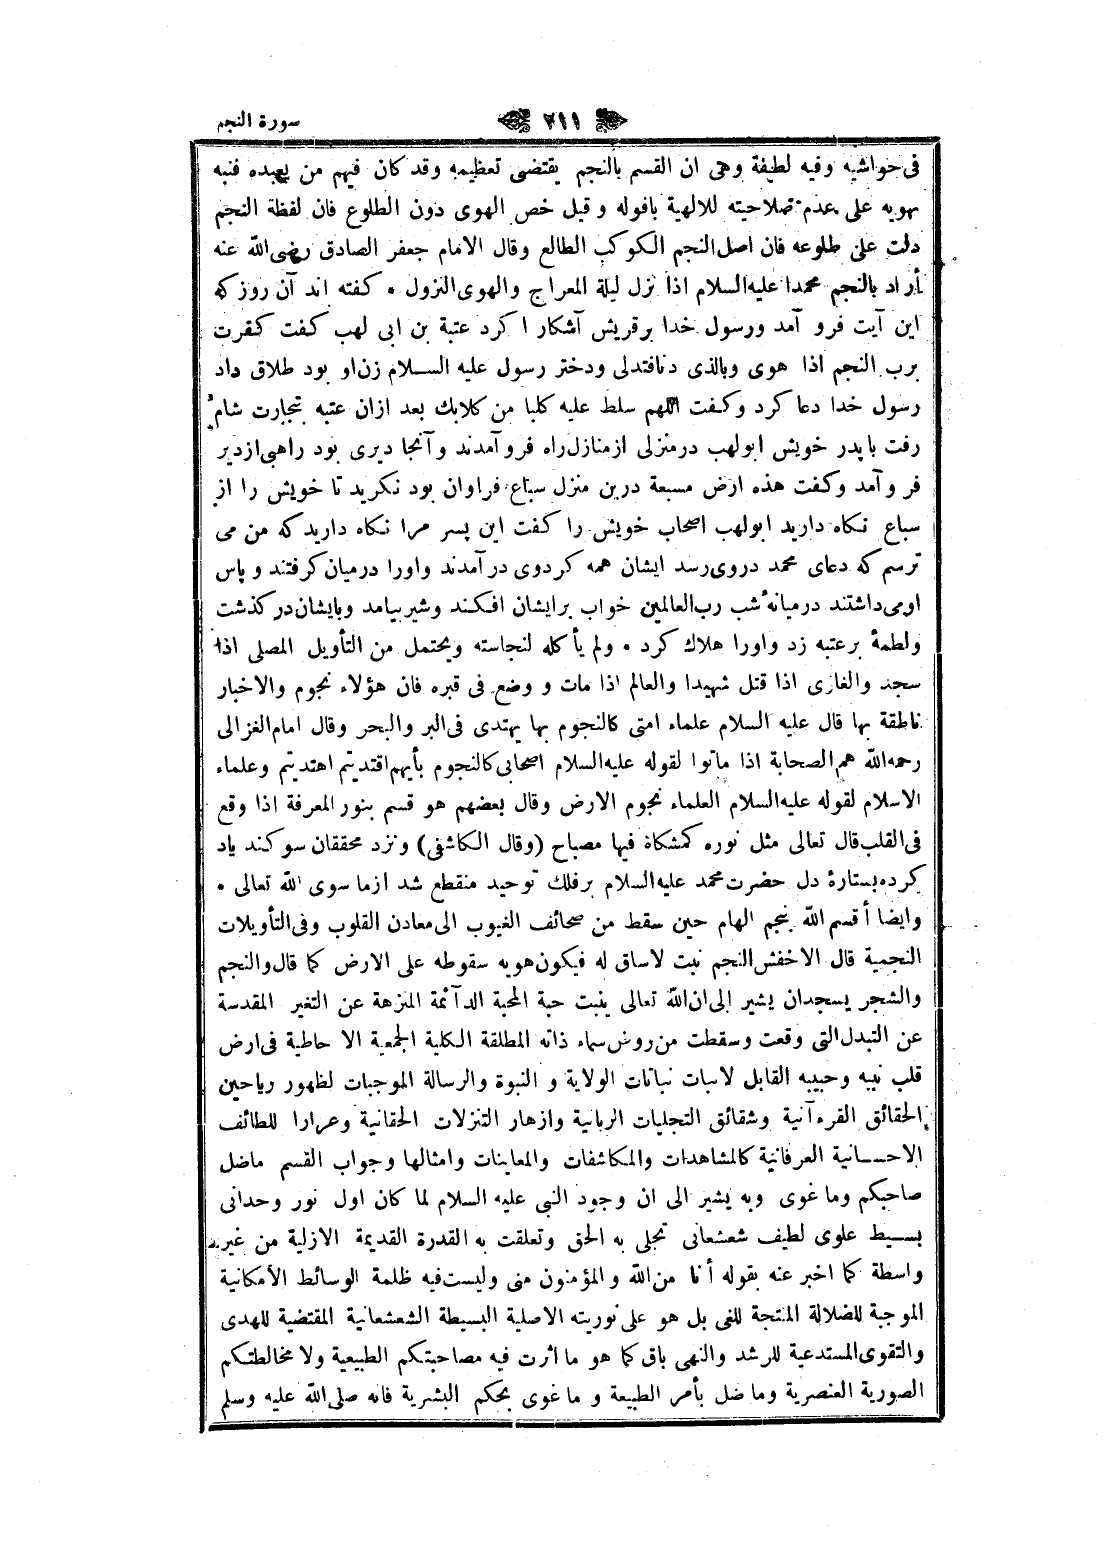 سورة النجم ٢١١
فى حواشيه وفيه لطيفة وهى ان القسم بالنجم يقتضى تعظيمه وقد كان فيهم من يعبده فنبه
بهويه على عدم صلاحيته للالهية بافوله وقيل خص الهوى دون الطلوع فان لفظة النجم
دلت على طلوعه فان اصل النجم الكوكب الطالع وقال الامام جعفر الصادق رضى الله عنه
أراد بالنجم محمدا عليه السلام اذا نزل ليلة المعراج والهوى النزول • كفته اند آن روز كه
اين آيت فرو آمد ورسول خدا برقريش آشكارا كرد عتبة بن ابى لهب كفت كفرت
برب النجم اذا هوى وبالذى دنا فتدلى ودختر رسول عليه السلام زن او بود طلاق داد
رسول خدا دعا كرد وكفت اللهم سلط عليه كلبا من كلابك بعد ازان عتبه بتجارت شام
رفت با پدر خويش ابو لهب در منزلى از منازل راه فرو آمدند وآنجا ديرى بود راهبى از دير
فرو آمد وكفت هذه ارض مسبعة درين منزل سباع فراوان بود نكريد تا خويش را از
سباع نكاه داريد ابو لهب اصحاب خويش را كفت اين پسر مرا نكاه داريد كه من مى
ترسم كه دعاى محمد دروى رسد ايشان همه كردوى در آمدند واورا درميان كرفتند وپاس
اومى داشتند درميانهٔ شب رب العالمين خواب برايشان افكند وشير بيامد وبايشان در كذشت
ولطمهٔ بر عتبه زد واورا هلاك كرد • ولم يأكله لنجاسته ويحتمل من التأويل المصلى اذا
سجد والغازى اذا قتل شهيدا والعالم اذا مات ووضع فى قبره فان هؤلاء نجوم والاخبار
ناطقة بها قال عليه السلام علماء امتى كالنجوم بها يهتدى فى البر والبحر وقال امام الغزالى
رحمه الله هم الصحابة اذا ماتوا لقوله عليه السلام اصحابى كالنجوم بأيهم اقتديتم اهتديتم وعلماء
الاسلام لقوله عليه السلام العلماء نجوم الارض وقال بعضهم هو قسم بنور المعرفة اذا وقع
فى القلب قال تعالى مثل نوره كمشكاة فيها مصباح (وقال الكاشفى) ونزد محققان سوكند ياد
كرده بستارهٔ دل حضرت محمد عليه السلام برفلك توحيد منقطع شد ازما سوى الله تعالى •
وايضا أقسم الله بنجم الهام حين سقط من صحائف الغيوب الى معادن القلوب وفى التأويلات
النجمية قال الاخفش النجم نبت لاساق له فيكون هويه سقوطه على الارض كما قال والنجم
والشجر يسجدان يشير الى ان الله تعالى ينبت حبة المحبة الدآئمة المنزهة عن التغير المقدسة
عن التبدل التى وقعت وسقطت من روش سماء ذاته المطلقة الكلية الجمعية الاحاطية فى ارض
قلب نبيه وحبيبه القابل لانبات نباتات الولاية والنبوة والرسالة الموجبات لظهور رياحين
الحقائق القرءآنية وشقائق التجليات الربانية وازهار التنزلات الحقانية وعرارا للطائف
الاحسانية العرفانية كالمشاهدات والمكاشفات والمعاينات وامثالها وجواب القسم ماضل
صاحبكم وما غوى وبه يشير الى ان وجود النبى عليه السلام لما كان اول نور وحدانى
بسيط علوى لطيف شعشعانى تجلى به الحق وتعلقت به القدرة القديمة الازلية من غير
واسطة كما اخبر عنه بقوله أنا من الله والمؤمنون منى وليست فيه ظلمة الوسائط الامكانية
الموجبة للضلالة المنتجة للغى بل هو على نوريته الاصلية البسيطة الشعشعانية المقتضية للهدى
والتقوى المستدعية للرشد والنهى باق كما هو ما اثرت فيه مصاحبتكم الطبيعية ولا مخالطتكم
الصورية العنصرية وما ضل بأمر الطبيعة وما غوى بحكم البشرية فانه صلى الله عليه وسلم